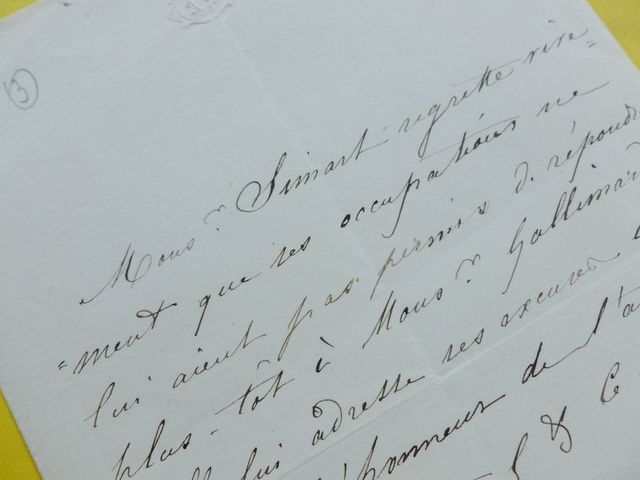 3
Mons.r Simart regrette vive=
=ment que ses occupations ne
lui aient pas permis de répondre
plus-tôt à Mons.r Gallimard
lui adresse ses excuses
l'honneur de l'a
& C